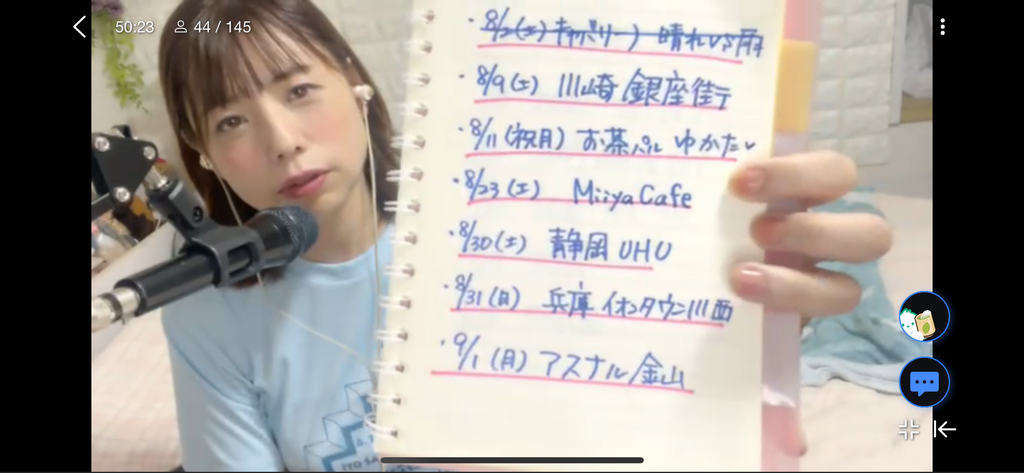 50:23 44 / 145
・8/2(土)キャバリーノ 晴れvs雨
・8/9(土) 川崎 銀座街
・8/11(祝月) お茶パル ゆかた
・8/23(土) Miiya Cafe
・8/30(土) 静岡 UHU
・8/31(日) 兵庫 イオンタウン川西
・9/1(月) アスナル金山